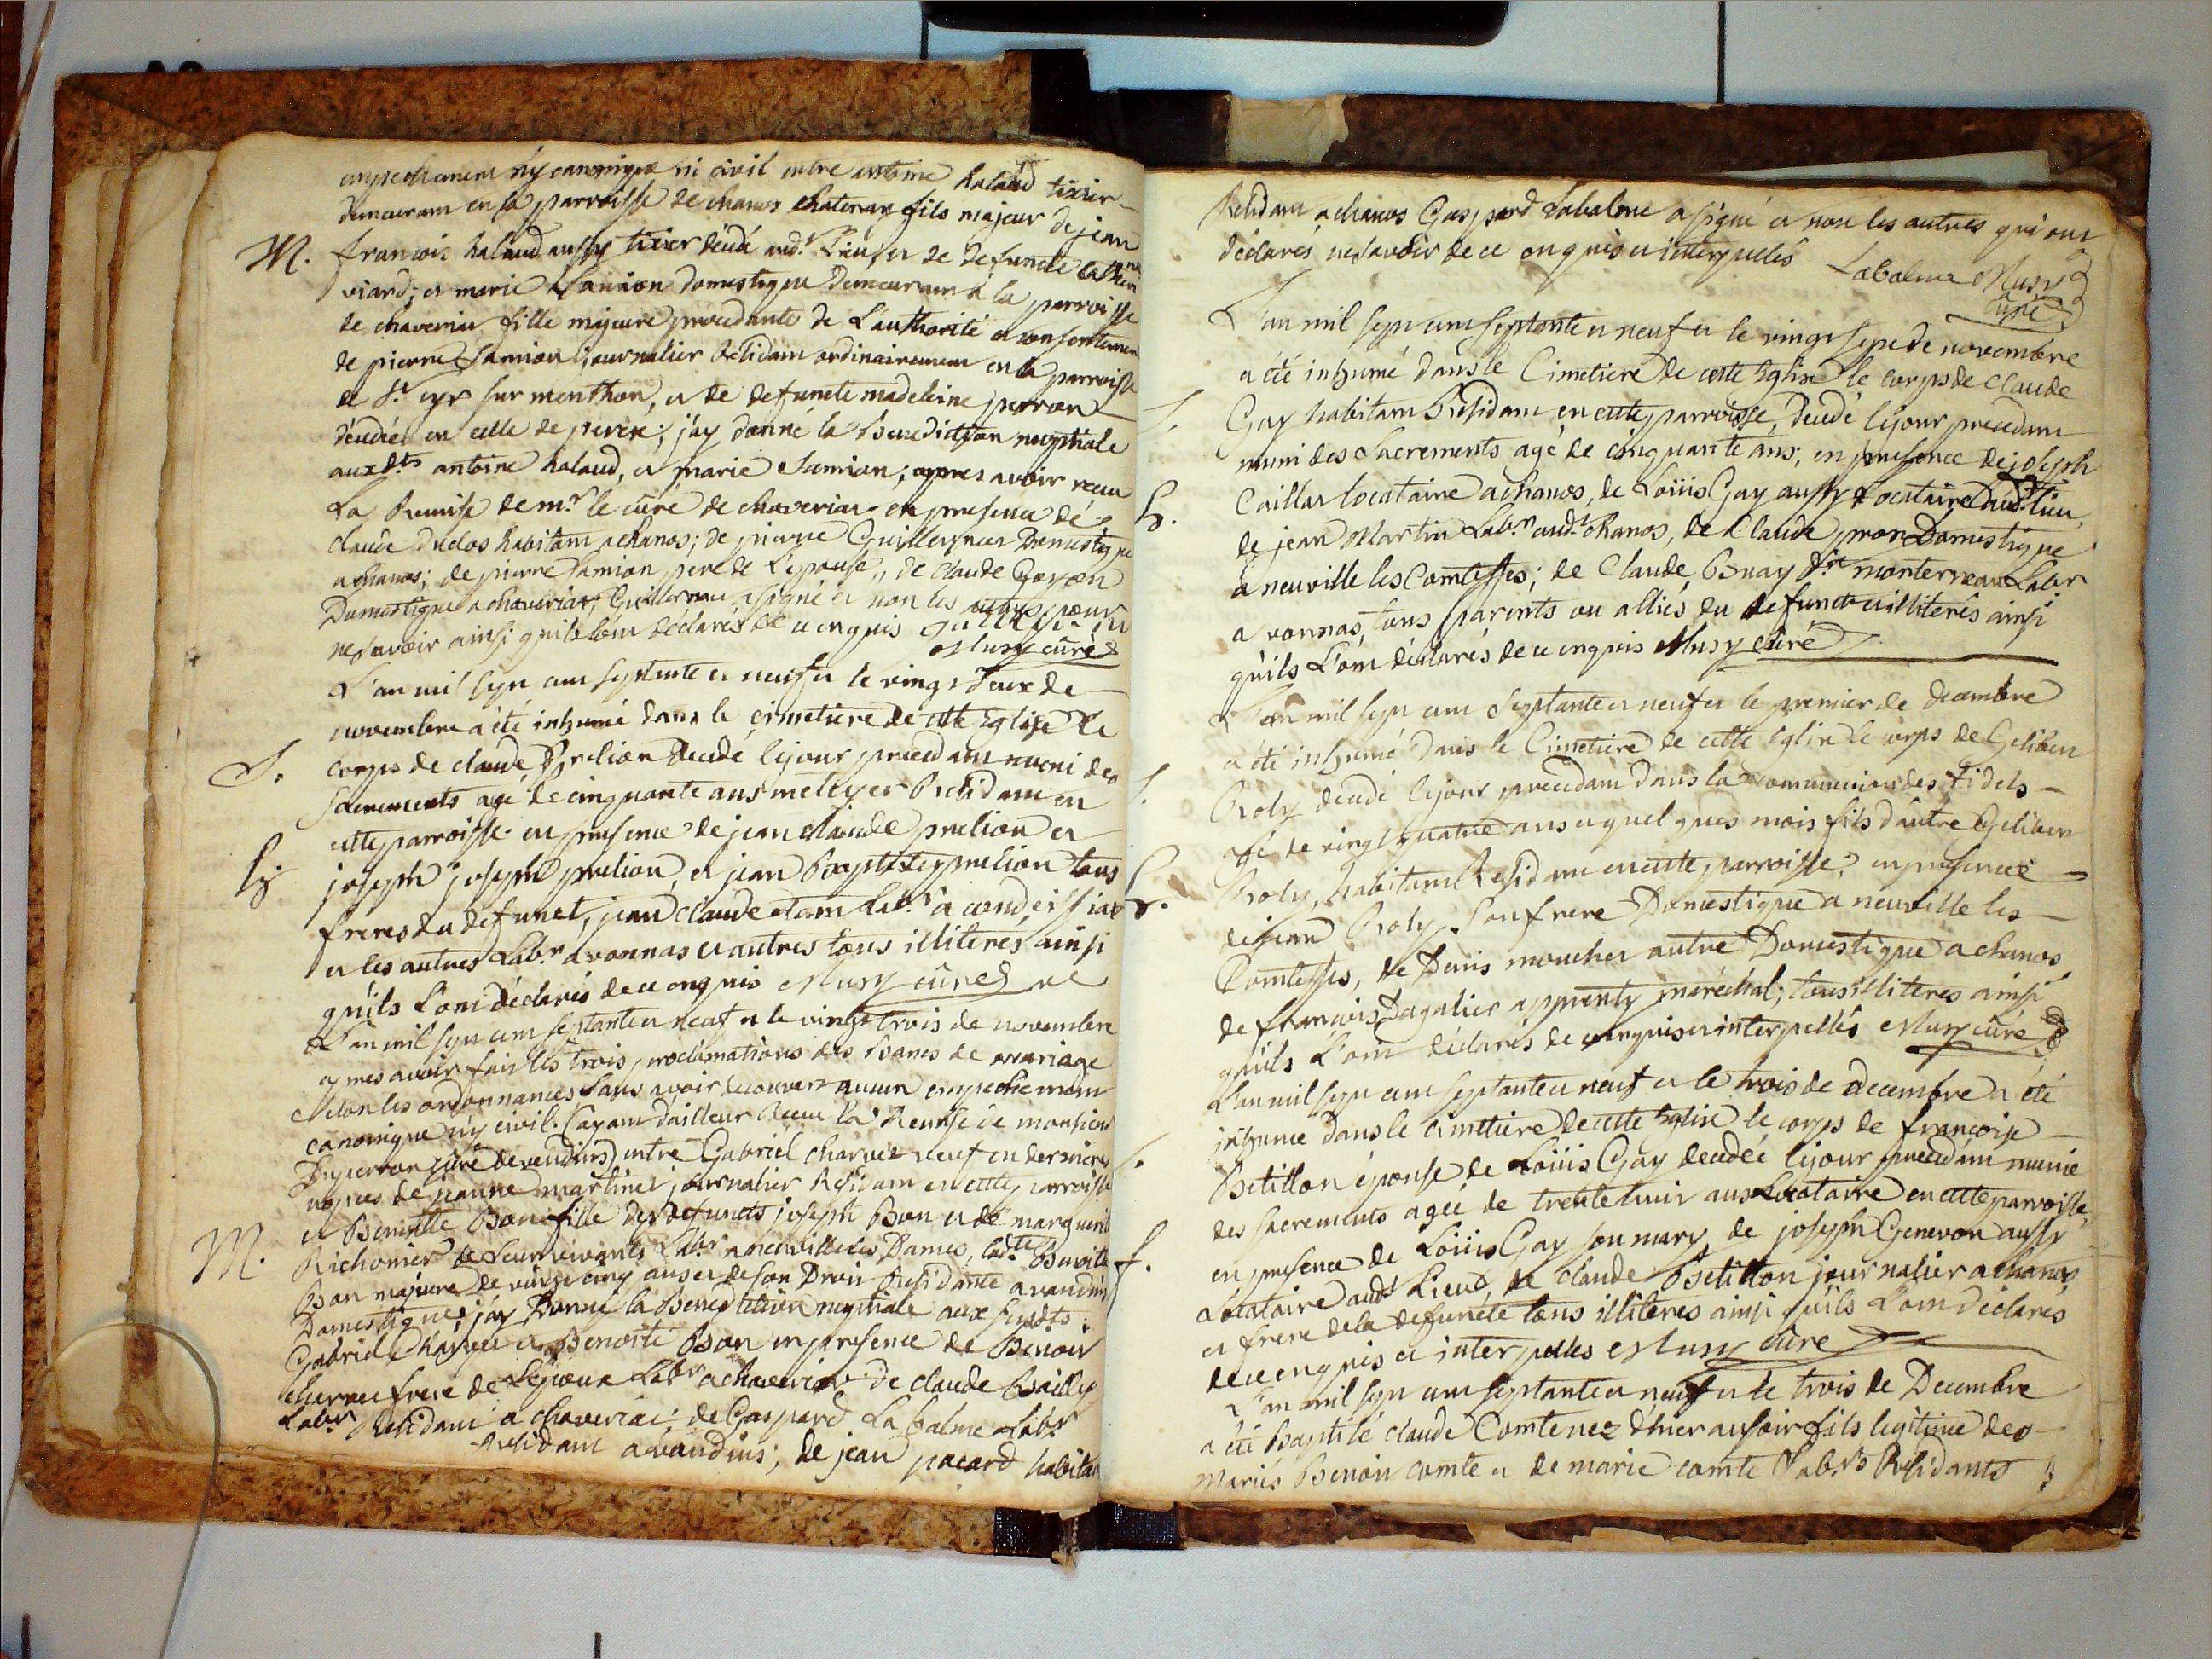 empechement ny canonique ni civil entre antoine halaud tixier
demeurant en sa parroisse de chanos chatenay fils majeur de jean
M. francois halaud aussy tixier décédé aud.t Lieu, et de defuncte
viard; et marie Samion domestique demeurant a la parroisse
de chaveriat fille majeure procedante de L'authorité et consentement
de pierre Samion journalier Résidant ordinairement en la parroisse
de St. cyr sur menthon, et de defuncte madeleine perron
décédée en celle de perex; j'ay donné la Benediction nuptiale
auxd.ts antoine halaud, et marie Samion; apres avoir receu
La Remise de mr. le curé de chaveriat en presence de
claude Duclos habitant a chanos; de Guillerminet Domestique
a chanos; de pierre Samion pere de L'epouse, de Claude Goyon
Domestique a chaveriat, a signé et non les autres pour
ne savoir ainsi quils l'ont déclarés de ce enquis
Musy curé
L'an mil sept cent septante et neuf et le vingt deux de
novembre a été inhumé dans le cimetiere de cette Eglise le
S. corps de claude prelion décédé le jour précédant muni des
sacrements agé de cinquante ans metteyer Résidant en
cette parroisse en presence de jean claude prelion et
joseph joseph prelion, et jean Baptiste prelion tous
freres du defunct, jean claude etant Lab.r à condeissiat
et les autres Lab.r a vonnas et autres tous illiterés ainsi
qu'ils L'ont déclarés de ce enquis Musy curé
L'an mil sept cent septante et neuf et le vingt trois de novembre
apres avoir fait les trois proclamations des Bancs de mariage
selon les ordonnances sans avoir decouvert aucun empechement
canonique n'y civil. (ayant dailleur Receu la Remise de monsieur
Duperron curé de vendeins) entre Gabriel charvet veuf en dernieres
nopces de jeanne martinet journalier Résidant en cette parroisse
et Benoitte Bon fille des defuncts joseph Bon et de marguerite
M. Richonier de leur vivants Lab.rs a neuville les Dames, lad.te Benoite
Bon majeure de vingt cinq ans et de son Droit Résidante a vandeins
Domestique; j'ay Donné la Benediction nuptiale aux susd.ts
Gabriel Charvet et Benoite Bon en presence de Benoit
charvet frere de L'epoux Lab.r a chaveriat de claude Bailly
Lab.r Résidant a chaveriat; de Gaspard La balme Lab.r
Résidant a vandeins; de jean pacard habitant
Résidant a chanos Gaspard Labalme a signé et non les autres qui ont
déclarés ne savoir de ce enquis et interpellés Labalme Musy
curé
L'an mil sept cent septante et neuf et le vingt sept de novembre
a été inhumé dans le Cimetiere de cette Eglise le corps de Claude
S. Gay habitant Résidant en cette parroisse, décédé le jour precedant
muni des Sacrements agé de cinquante ans; en presence de joseph
Caillat locataire a chanos, de Loüis Gay aussy Locataire aud.t lieu
de jean Martin Lab.r aud.t chanos, de Claude Domestique
a neuville les Comtesses; de Claude Buay Lab.r
a vonnas, tous parents ou alliés du defunct et illiterés ainsi
qu'ils L'ont déclarés de ce enquis Musy curé
L'an mil sept cent Septante et neuf et le premier de decembre
a été inhumé dans le Cimetiere de cette Eglise le corps de Gelibert
S. Roly décédé le jour precedant dans la communion des fidels
agé de vingt quatre ans et quelques mois fils d'autre Gelibert
Roly, habitant Résidant en cette parroisse; en presence
de jean Roly son frere Domestique a neuville les
Comtesses, de Denis moucher autre Domestique a chanos
de francois Dagalier apprenty maréchal; tous illiteres ainsi
qu'ils L'ont déclarés de ce enquis et interpellés Musy curé
L'an mil sept cent septante et neuf et le trois de decembre a été
inhumée dans le cimetiere de cette Eglise le corps de francoise
S. Betillon épouse de Loüis Gay décédée le jour precedant munie
des sacrements agée de trente huit ans Locataire en cette parroisse,
en presence de Loüis Gay son mary, de joseph Genevon aussy
Locataire aud.t Lieu, de claude Betillon journalier a chanos
et frere de la defuncte tous illiteres ainsi qu'ils L'ont déclarés
de ce enquis et interpellés Musy curé
L'an mil sept cent septante et neuf et le trois de Decembre
a été Baptisé claude Comte nez d'hier au soir fils legitime des
mariés Benoit comte et de marie comte Lab.rs Résidants